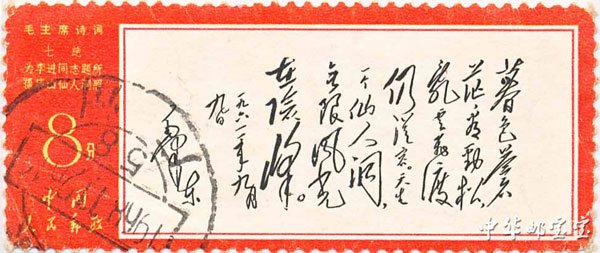 毛主席诗词
七绝
为李进同志题所
摄庐山仙人洞照
8分
中国
人民邮政
暮色蒼
茫看勁松,
亂雲飛渡
仍從容。天生
一个仙人洞,
无限風光
在險峰。
一九六一年九月
九日
毛泽东
中华邮宝宝